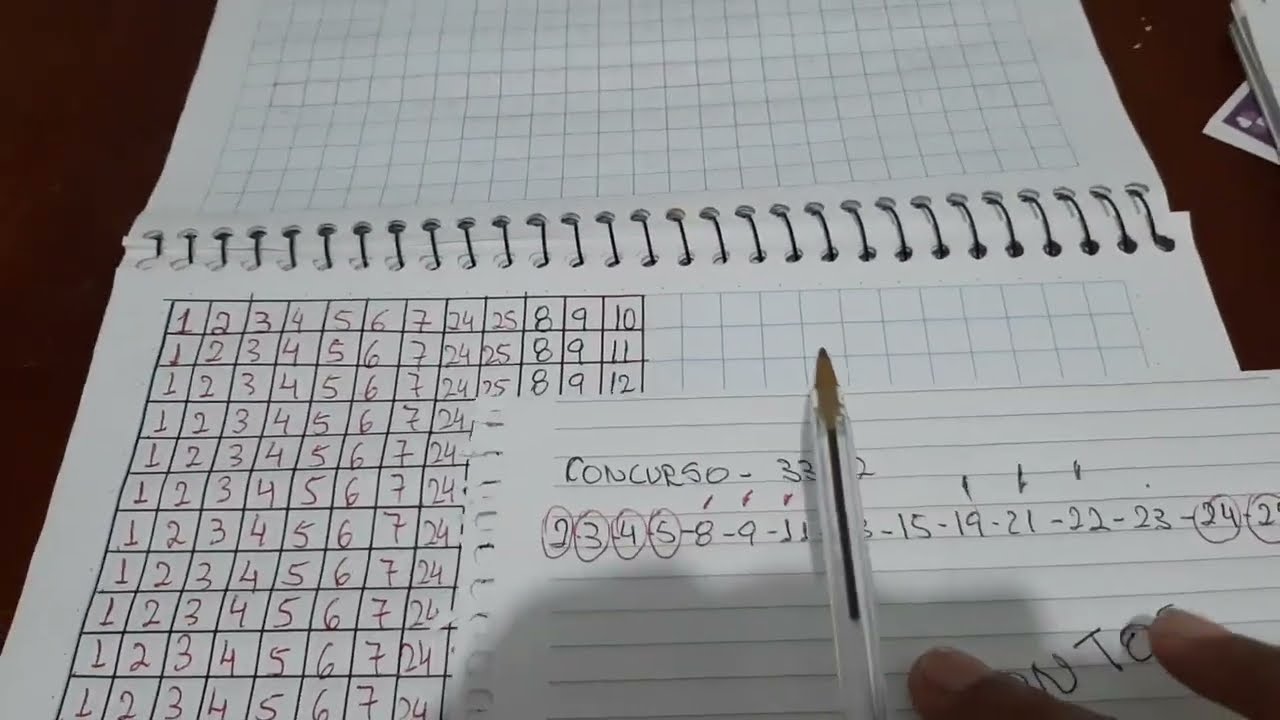 1 2 3 4 5 6 7 24 25 8 9 10
1 2 3 4 5 6 7 24 25 8 9 11
1 2 3 4 5 6 7 24 25 8 9 12
1 2 3 4 5 6 7 24
1 2 3 4 5 6 7 24
1 2 3 4 5 6 7 24
1 2 3 4 5 6 7 24
1 2 3 4 5 6 7 24
1 2 3 4 5 6 7 24
1 2 3 4 5 6 7 24
1 2 3 4 5 6 7 24
CONCURSO -
2 3 4 5 - 8 - 9 - 11 - 15 - 19 - 21 - 22 - 23 - 24 -